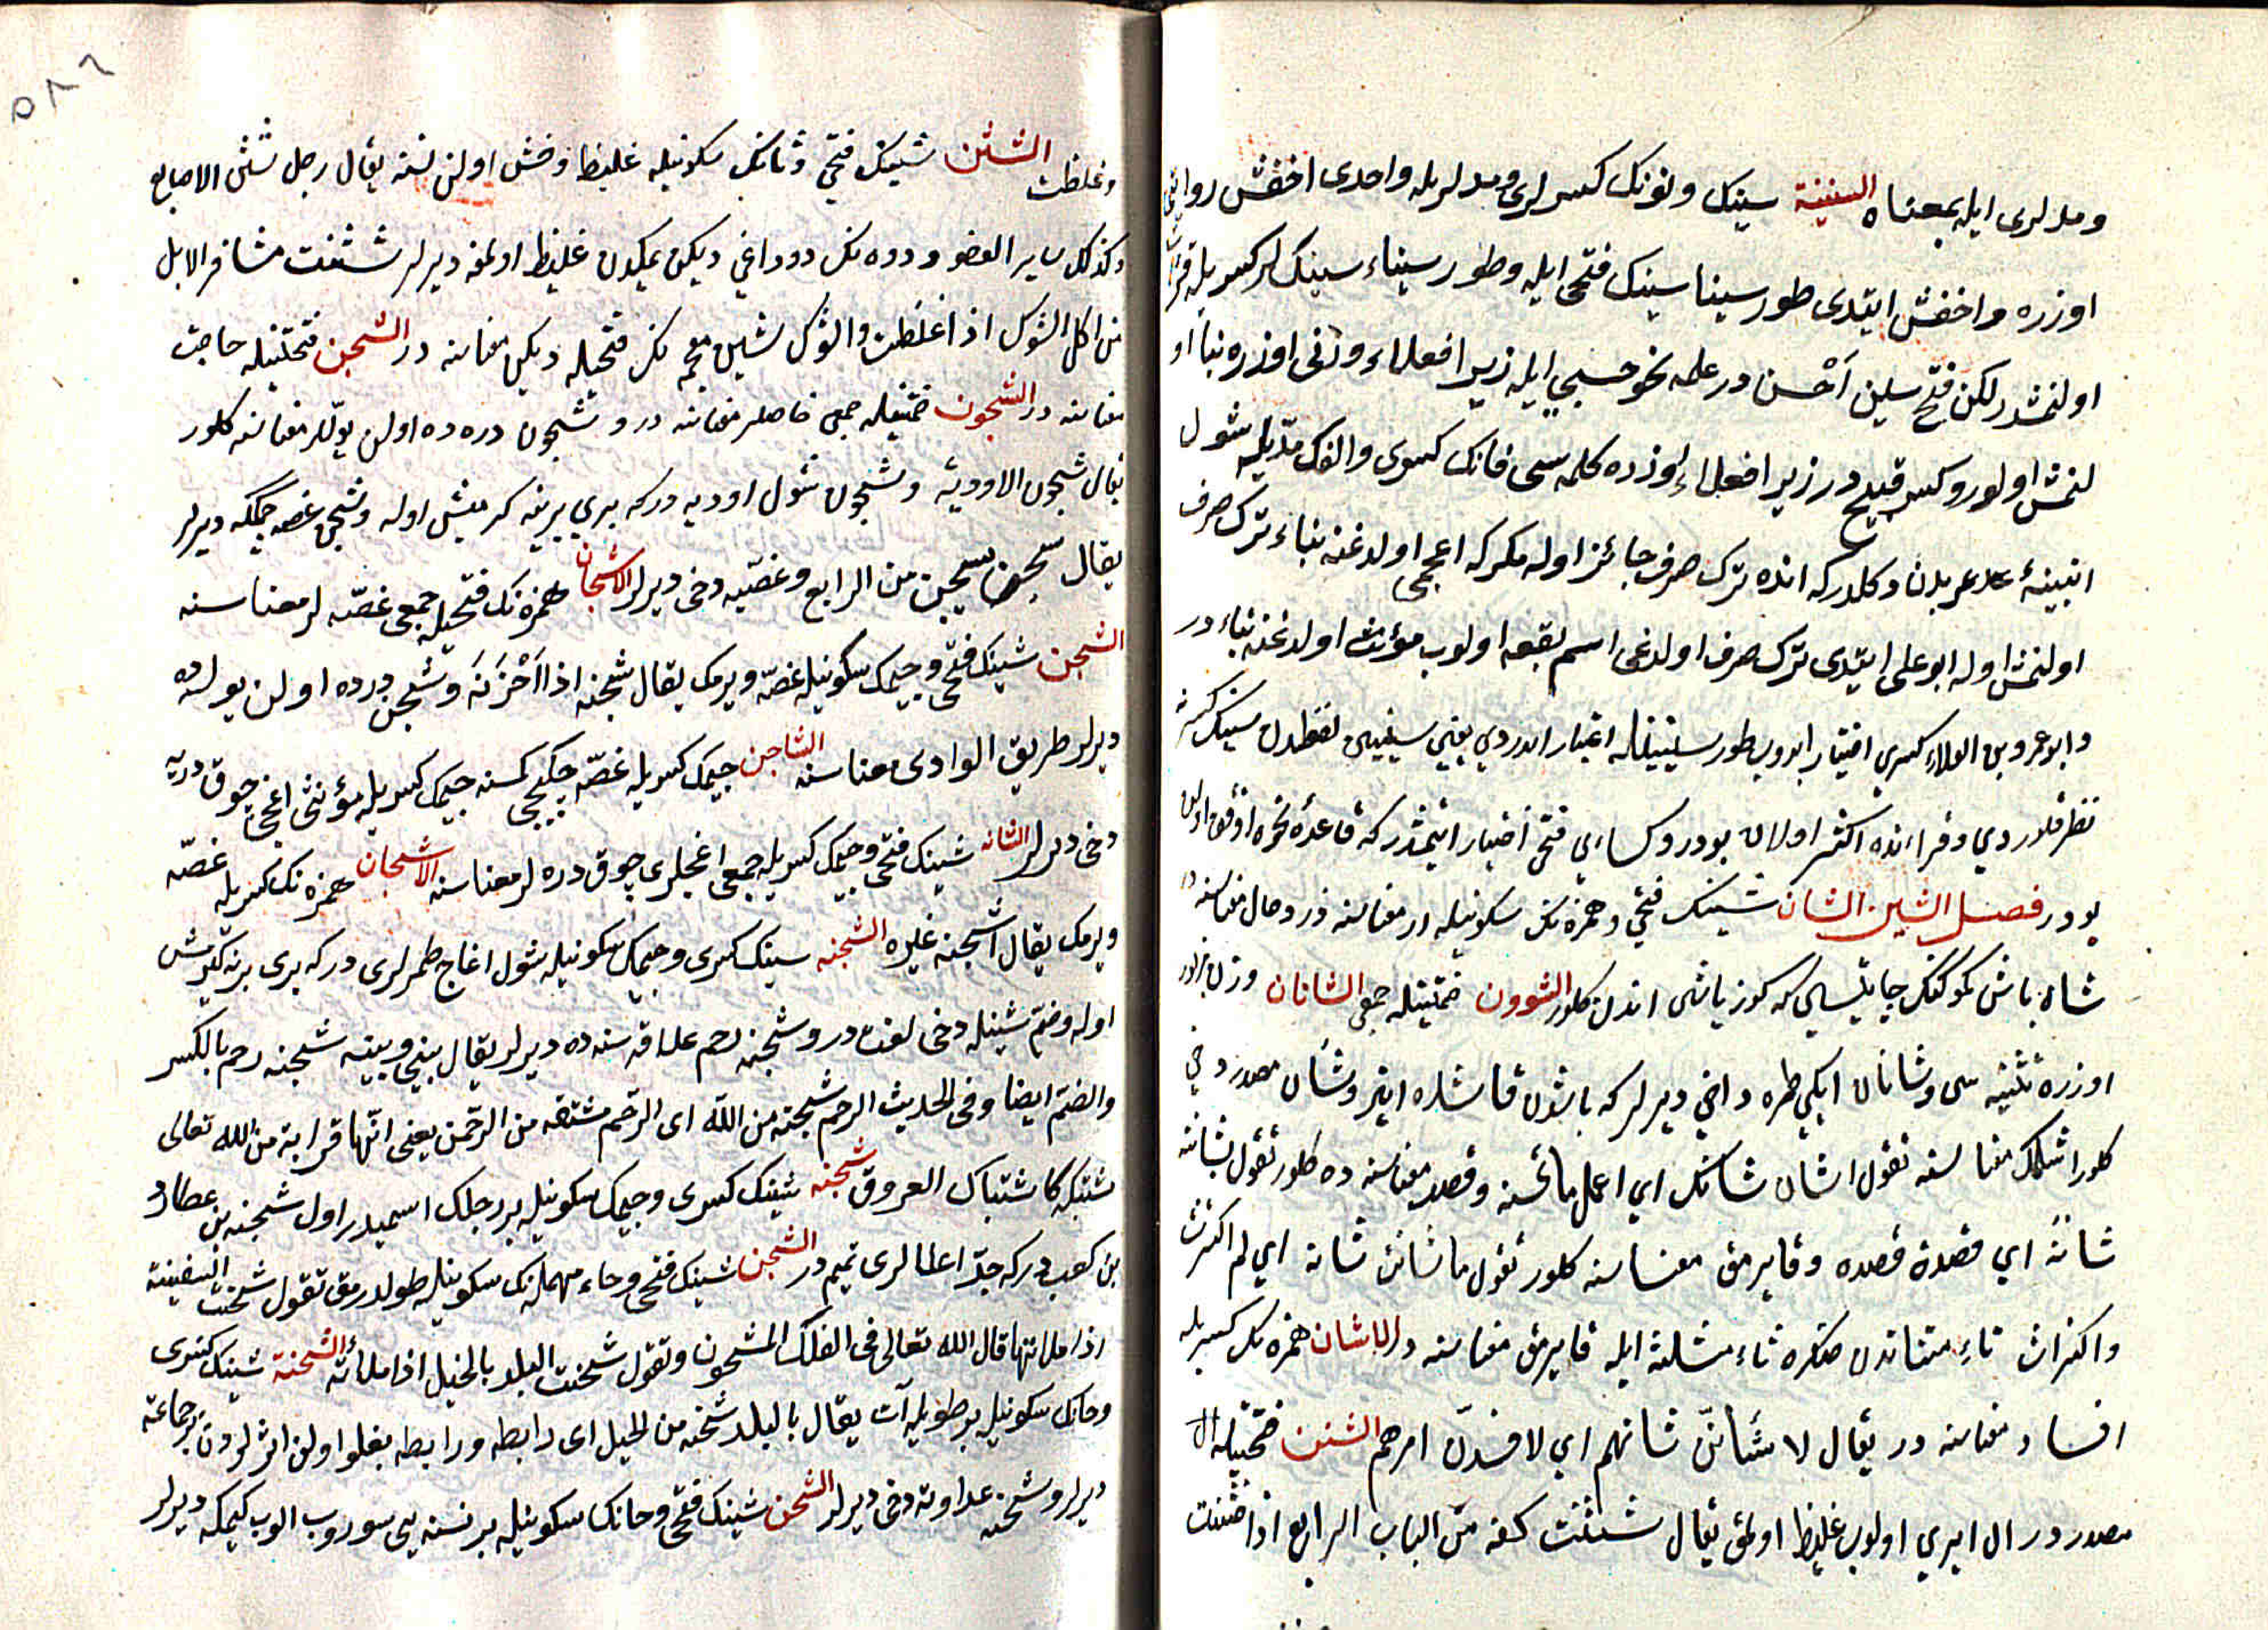 ومدلری ایله بمعناه السینینة سینک ونونک کسرلری ومدلریله واحدی اخفش روایتی
اوزره واخفش ایتدی طور سینا سینک فتحی ایله وطور سیناء سینک کسریله
اولنمشدر لکن فتح سین اَحْسن در علمه نحو حسبی ایله زیرا فعلاء وزنی اوزره بنا او
لنمش اولور وکسر قبیح در زیرا فعلاء اوزره کلمه سی فانک کسری والفک مدّیله شول
ابنیهٔ عربدن دکلدرکه انده ترک صرف جائز اوله مکرکه اعجمی اولدغنه بناء ترک صرف
اولنمش اوله ابو علی ایتدی ترک صرف اولدغی اسم بقعه اولوب مؤنث اولدغنه بناء در
وابوعمرو بن العلاء کسری اختیار ایدوب طور سینینله اعتبار ایدردی یعنی سینین لفظندن سینک کسرنه
نظر قلوردی وقراءده اکثر اولان بودر وکسائی فتحی اختیار ایتمشدر که قاعدهٔ نحوه اوفق اولان
بودر فصل الشین الشان شینک فتحی وهمزه نک سکونیله ار معناسنه در وحال معناسنه در
شاه باش کوکنک چاتیسی که کوز یاشی اندن کلور الشوون ضمتینله جمعی الشانان وزن
اوزره تثنیه سی وشانان ایکی طمره داخی دیرلر که باشدن قاشلره اینر وشأن مصدر دخی
کلور اشلمک معناسنه تقول اشان شانک ای اعمل ماتحسنه وقصد معناسنه ده کلور تقول شانت
شانَه ای قصدت قصده وقایرمق معناسنه کلور تقول ما شانت شانه ای لم اکترث
واکتراث تاء مثناتدن صکره ثاء مثلثه ایله قایرمق معناسنه در الاشان همزه نک کسریله
افساد معناسنه در یقال لاشأننّ شانهم ای لافسدنّ امرهم الشثن فتحتینله ال
مصدردر ال ایری اولوب غلیظ اولمق یقال شثنت کفه من الباب الرابع اذا خشنت
۵۸٦
وغلظت الشثن شینک فتحی وثانک سکونیله غلیظ وخشن اولن نسنه یقال رجل شثن الاصابع
وکذلک سایر العضو ودوه نک دوداغی دیکن یمکدن غلیظ اولمغه دیرلر شثنت مشافر الابل
من اکل الشوک اذا غلظت والشوک شین معجمه نک فتحیله دیکن معناسنه در الشجن فتحتینله حاجت
معناسنه در الشجون ضمتینله جمعی حاجتلر معناسنه در وشجون دره ده اولن یوللر معناسنه کلور
یقال شجون الاودیة وشجون شول اودیه درکه بری برینه کرمش اوله وشجن غصه چکمکه دیرلر
یقال شجن یشجن من الرابع وغصّیه دخی دیرلر الاشجان همزه نک فتحیله جمعی غصّه لر معناسنه
الشجن شینک فتحی وجیمک سکونیله غصّه ویرمک یقال شجنه اذا اَحْزَنَه وشجن دره ده اولن یولده
دیرلر طریق الوادی معناسنه الشاجن جیمک کسریله غصّه چکیجی کمسنه جیمک کسریله مؤنثی اغجی چوق دریه
دخی دیرلر شینک فتحی وجیمک کسریله جمعی اغجلری چوق دره لر معناسنه الاشجان همزه نک کسریله غصّه
ویرمک یقال اشجنه غیره الشجنه سینک کسری وجیمک سکونیله شول اغاج طمرلری درکه بری برینه کیرمش
اوله وضمّ شینله دخی لغت در وشجنه رحم علاقه سنده ده دیرلر یقال بینی وبینه شجنه رحم بالکسر
والضمّ ایضا وفی الحدیث الرحم شجنة من اللّه ای الرّحم مشتقه من الرّحمن یعنی انّها قرابة من اللّه تعالی
مشتبکه کاشتباک العروق شجنه شینک کسری وجیمک سکونیله بر رجلک اسمیدر اول شجنه بن عطارد
بن کعب درکه جدّ اعلالری تمیم در الشحن شینک فتحی وحاء مهمله نک سکونیله طولدرمق تقول شحنت السفینة
اذا ملاتها قال الله تعالی فی الفلک المشحون وتقول شحنت البلد بالخیل اذا ملأته الشحنة شینک کسری
وحانک سکونیله بر طویله آت یقال بالبلد شحنه من الخیل ای رابطه ورابطه بغلو اولن اتلردن بر جماعته
دیرلر وشحنه عداوته دخی دیرلر الشحن شینک فتحی وحانک سکونیله بر نسنه یی سوروب الوب کیمکه دیرلر